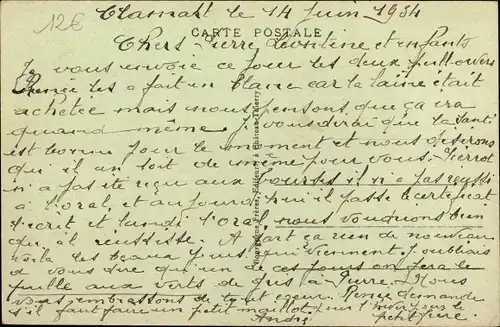 12€
Clamart le 14 Juin 1934
CARTE POSTALE
Chers Pierre et enfants
Je vous envoie ce jour les deux pull-overs
Renée les a fait en blanc car la laine était
achetée mais nous pensons que ça ira
quand même. Je vous dirai que la santé
est bonne pour le moment et nous désirons
qu'il en soit de même pour vous. Pierrot
n'a pas été reçu aux bourses il n'a pas reussi
à l'oral, et aujourd'hui il passe le certificat
l'ecrit et lundi l'oral, nous voudrions bien
qu'il réussisse. A part ça rien de nouveau
voila les beaux jours qui viennent. J'oubliais
de vous dire qu'un de ces jours on fera le
aux verts de gris à Pierre. Nous
vous embrassons de tout coeur. Renée demande
s'il faut faire un petit maillot pour l'avoir sur le
André petit frère.
Bourgogne Frères, Editeurs à Château-Thierry